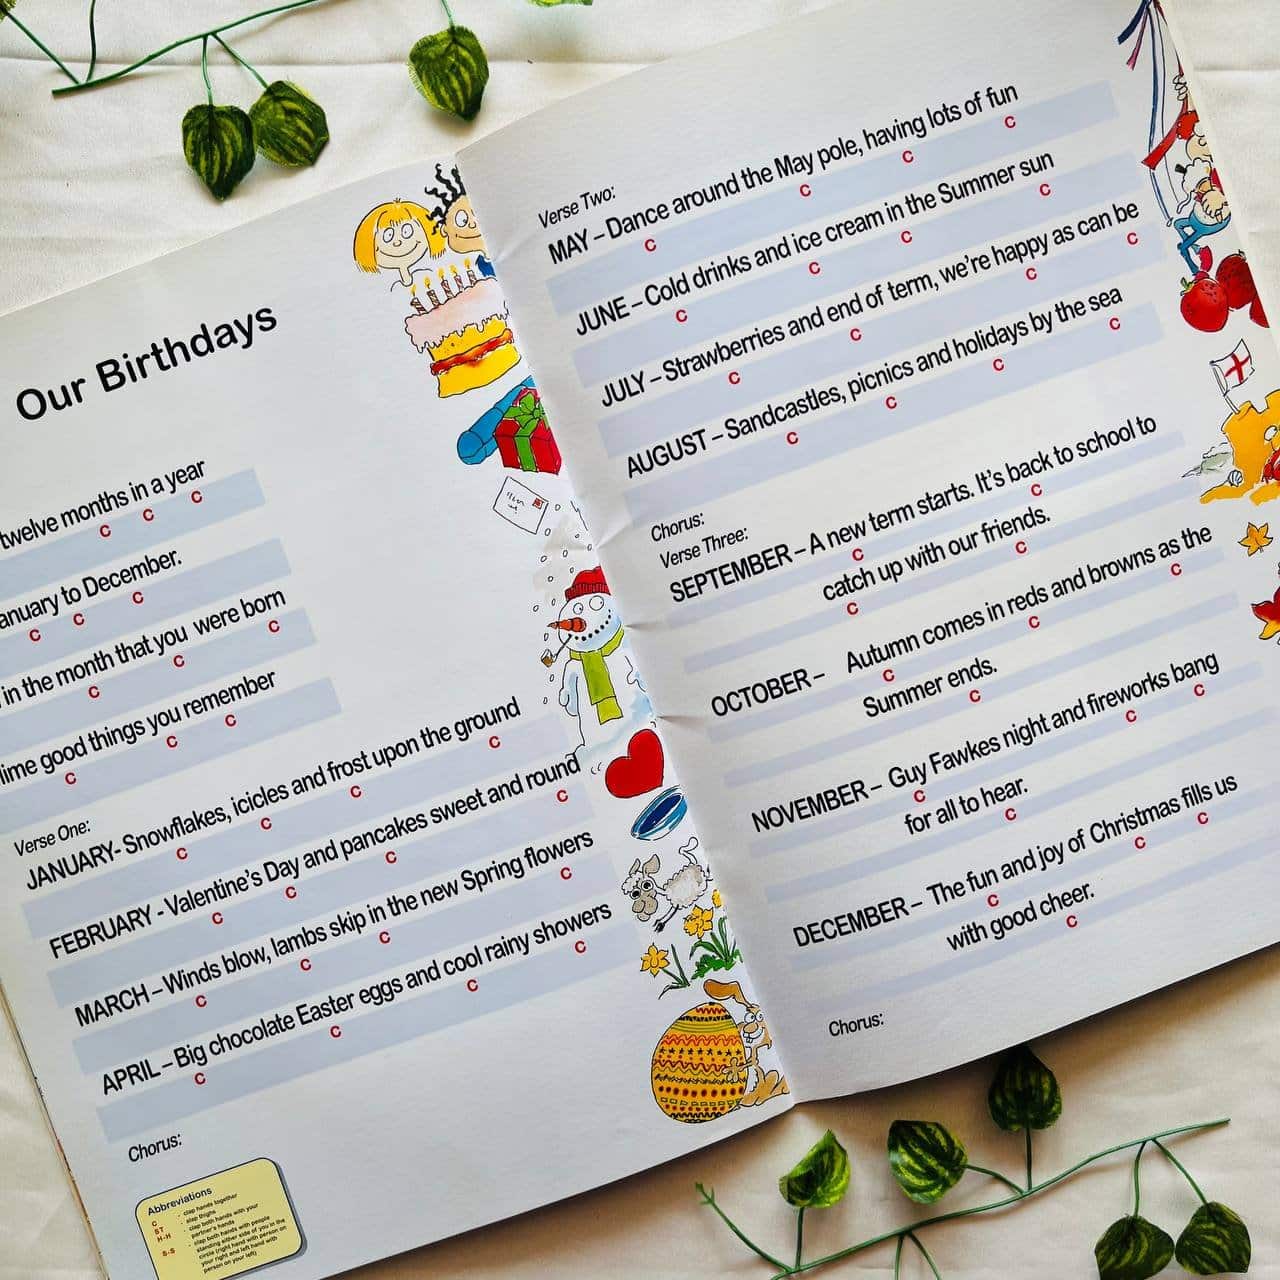 Our Birthdays
twelve months in a year
C C C
January to December.
C C C
in the month that you were born
C C C
good things you remember
C C C
Verse One:
JANUARY- Snowflakes, icicles and frost upon the ground
C C C C
FEBRUARY - Valentine's Day and pancakes sweet and round
C C C C
MARCH – Winds blow, lambs skip in the new Spring flowers
C C C C
APRIL – Big chocolate Easter eggs and cool rainy showers
C C C C
Chorus:
Abbreviations
C : clap hands together
ST : slap thighs
H-H : clap both hands with your
partner's hands
S-S : clap both hands with people
standing either side of you in the
circle (right hand with person on
your right and left hand with
person on your left)
Verse Two:
MAY – Dance around the May pole, having lots of fun
C C C C
JUNE – Cold drinks and ice cream in the Summer sun
C C C C
JULY – Strawberries and end of term, we're happy as can be
C C C C
AUGUST – Sandcastles, picnics and holidays by the sea
C C C C
Chorus:
Verse Three:
SEPTEMBER – A new term starts. It's back to school to
C C
catch up with our friends.
C C
OCTOBER – Autumn comes in reds and browns as the
C C C
Summer ends.
C
NOVEMBER – Guy Fawkes night and fireworks bang
C C C
for all to hear.
C
DECEMBER – The fun and joy of Christmas fills us
C C C
with good cheer.
C
Chorus: